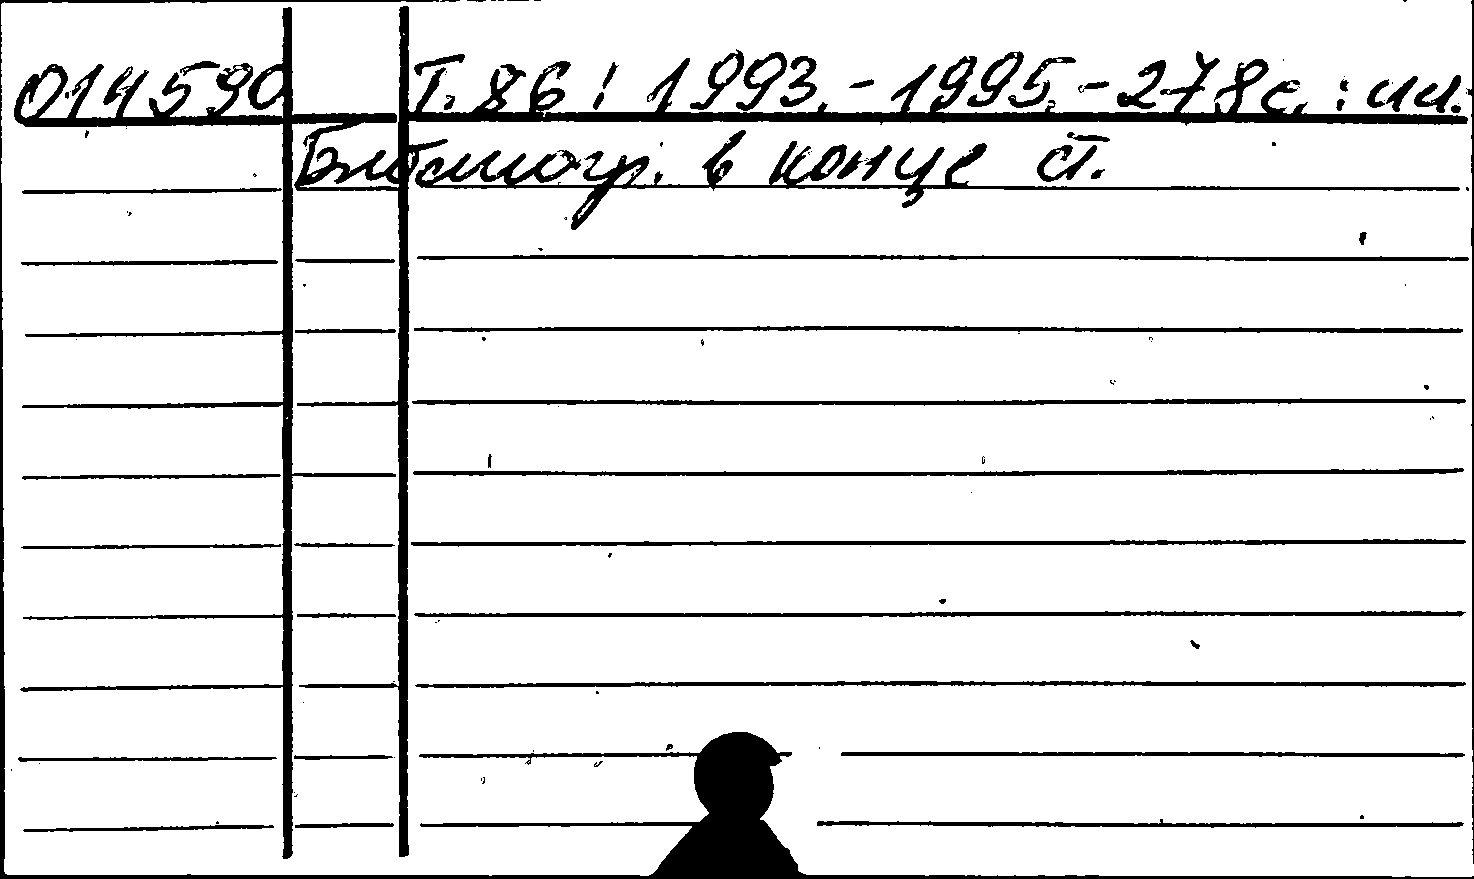 014590 Т. 86 : 1993. - 1995. - 278 с. : ил.
Библиогр. в конце ст.